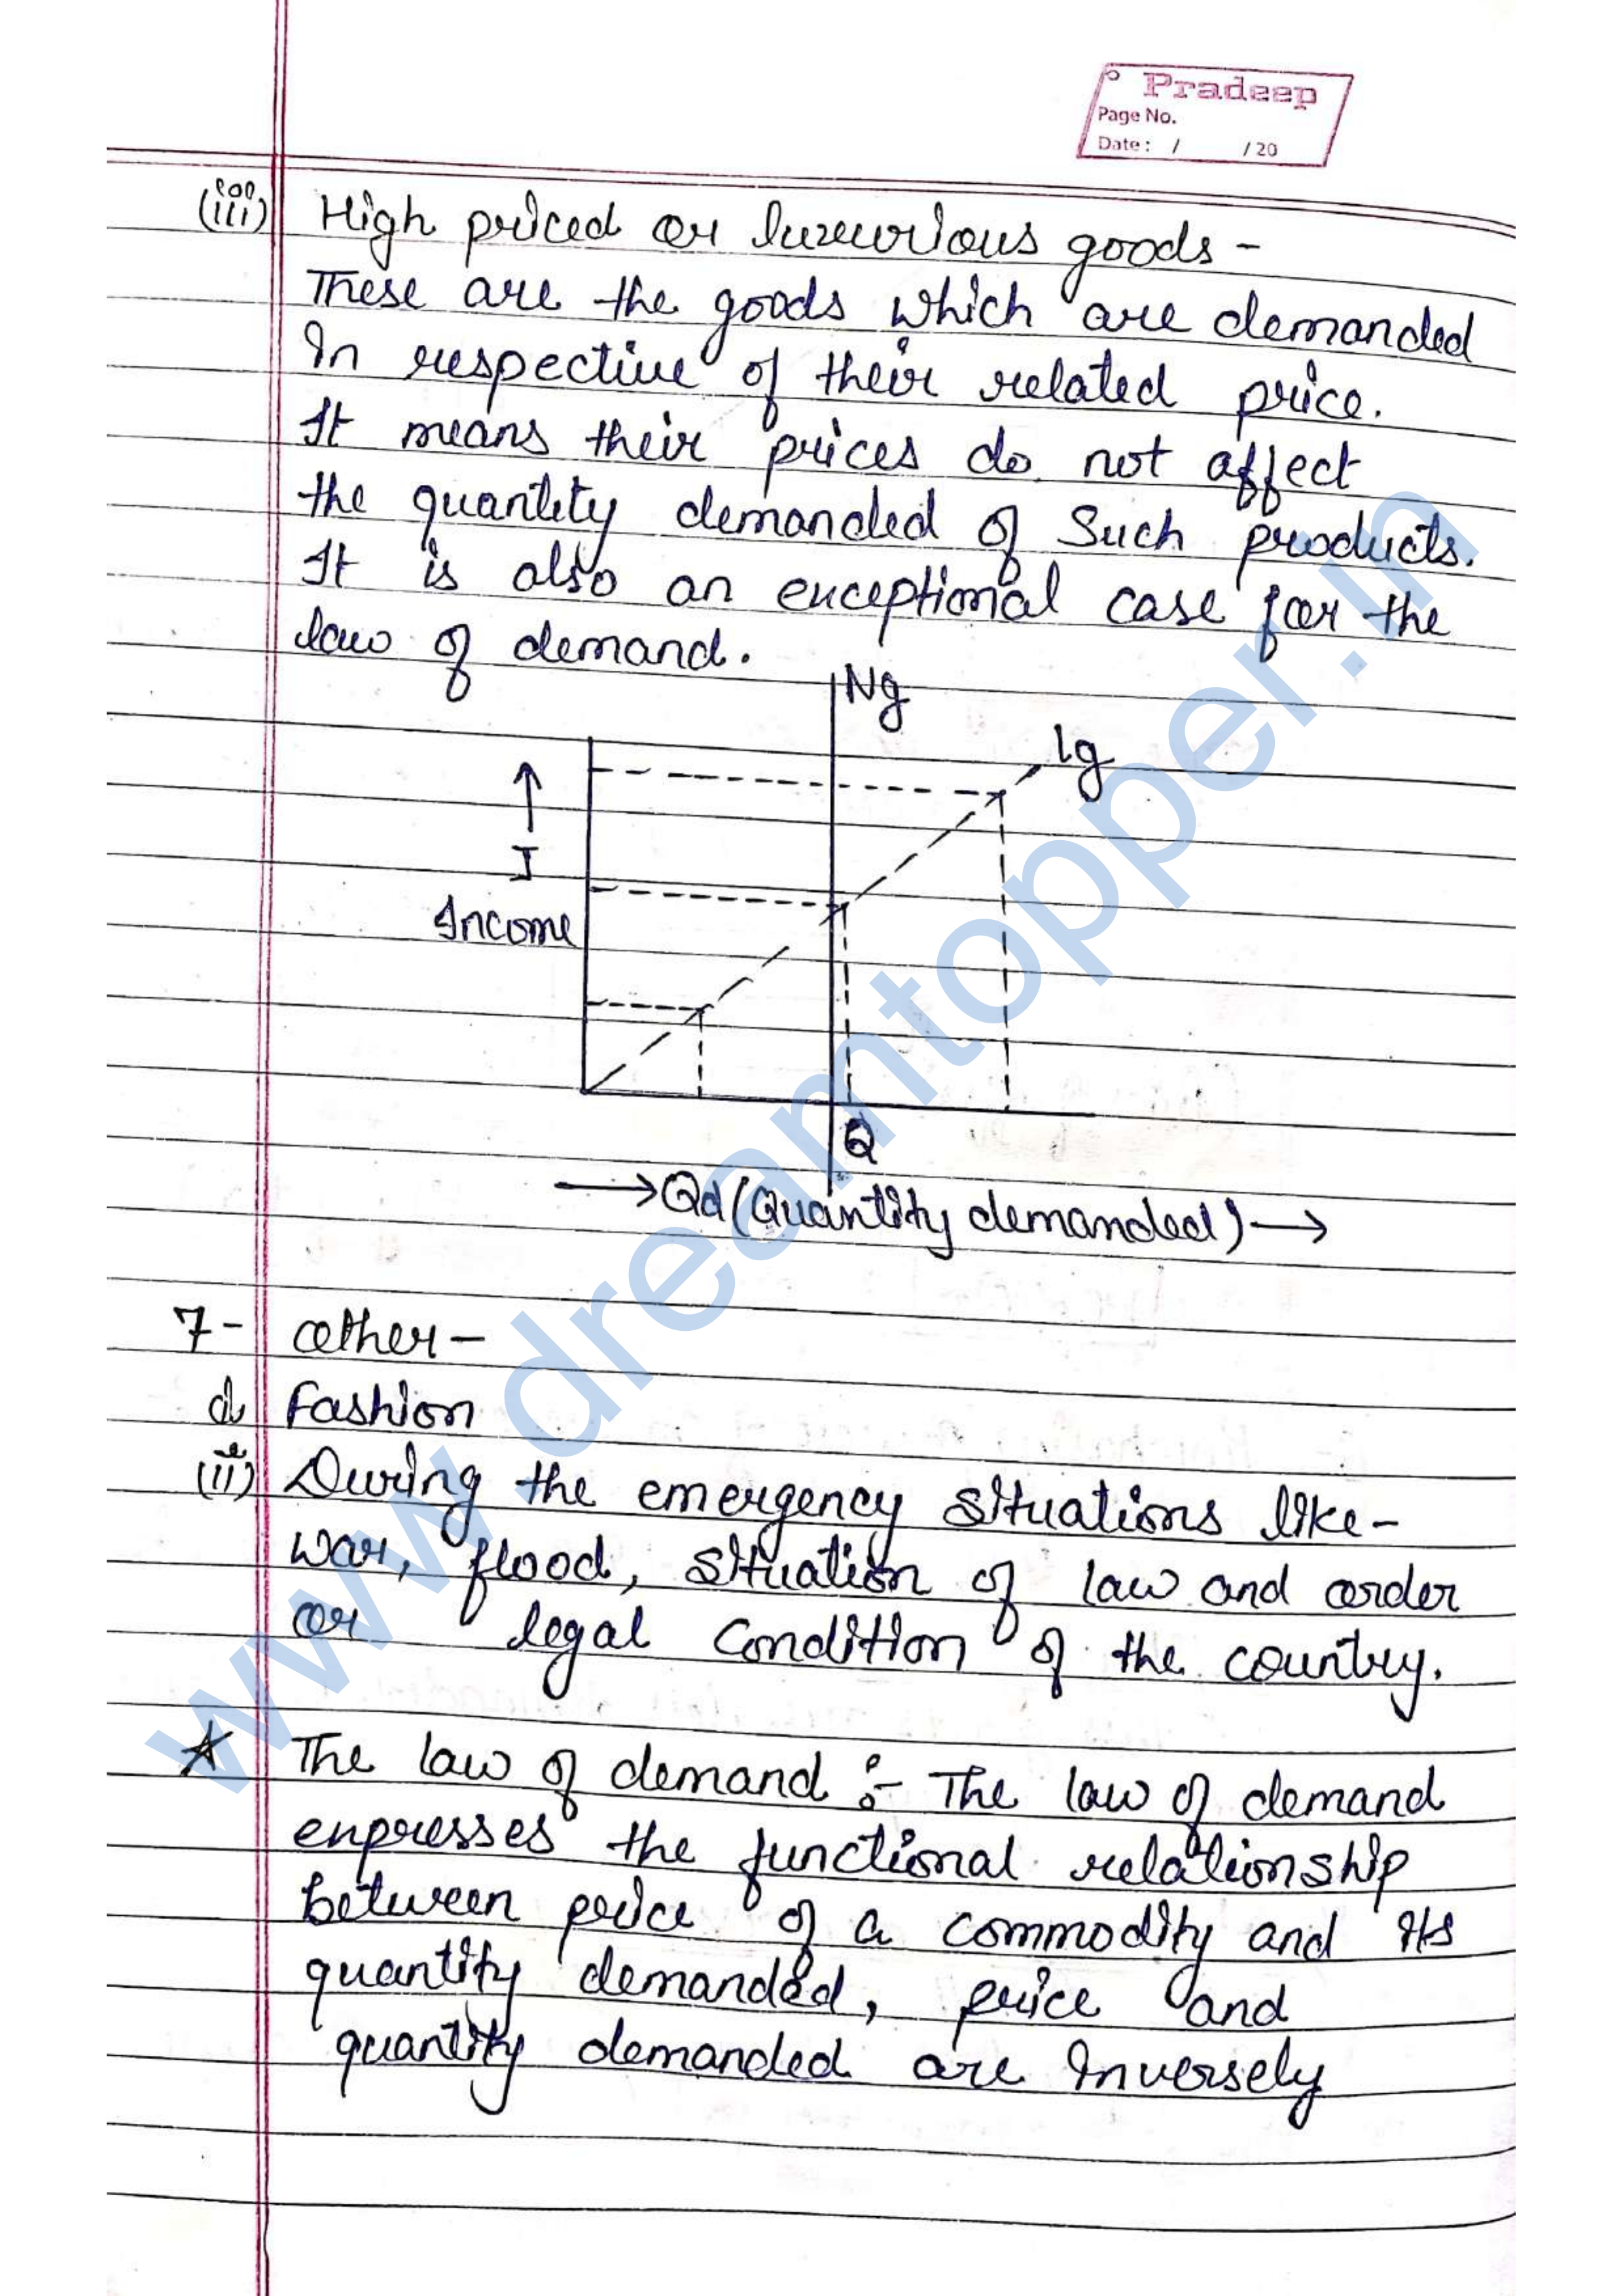 Pradeep
Page No.
Date : / / 20
(iii) High priced or luxurious goods -
These are the goods which are demanded
In respective of their related price.
It means their prices do not affect
the quantity demanded of Such products.
It is also an exceptional case for the
law of demand.
Ng
lg
I
Income
Q
Qd (Quantity demanded)
7- other -
Fashion
(ii) During the emergency situations like-
war, flood, situation of law and order
or legal condition of the country.
The law of demand :- The law of demand
expresses the functional relationship
between price of a commodity and its
quantity demanded, price and
quantity demanded are inversely
www.dreamtopper.in